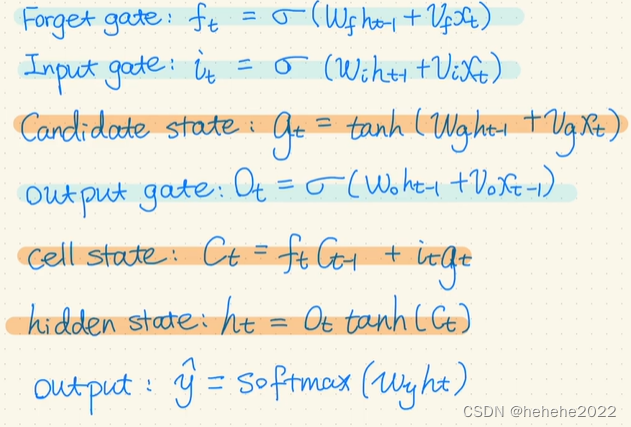 Forget gate: f_t = σ (W_f h_{t-1} + V_f x_t)
Input gate: i_t = σ (W_i h_{t-1} + V_i x_t)
Candidate state: g_t = tanh (W_g h_{t-1} + V_g x_t)
output gate: O_t = σ (W_o h_{t-1} + V_o x_{t-1})
cell state: C_t = f_t C_{t-1} + i_t g_t
hidden state: h_t = O_t tanh (C_t)
output: ŷ = softmax (W_y h_t)
CSDN @hehehe2022